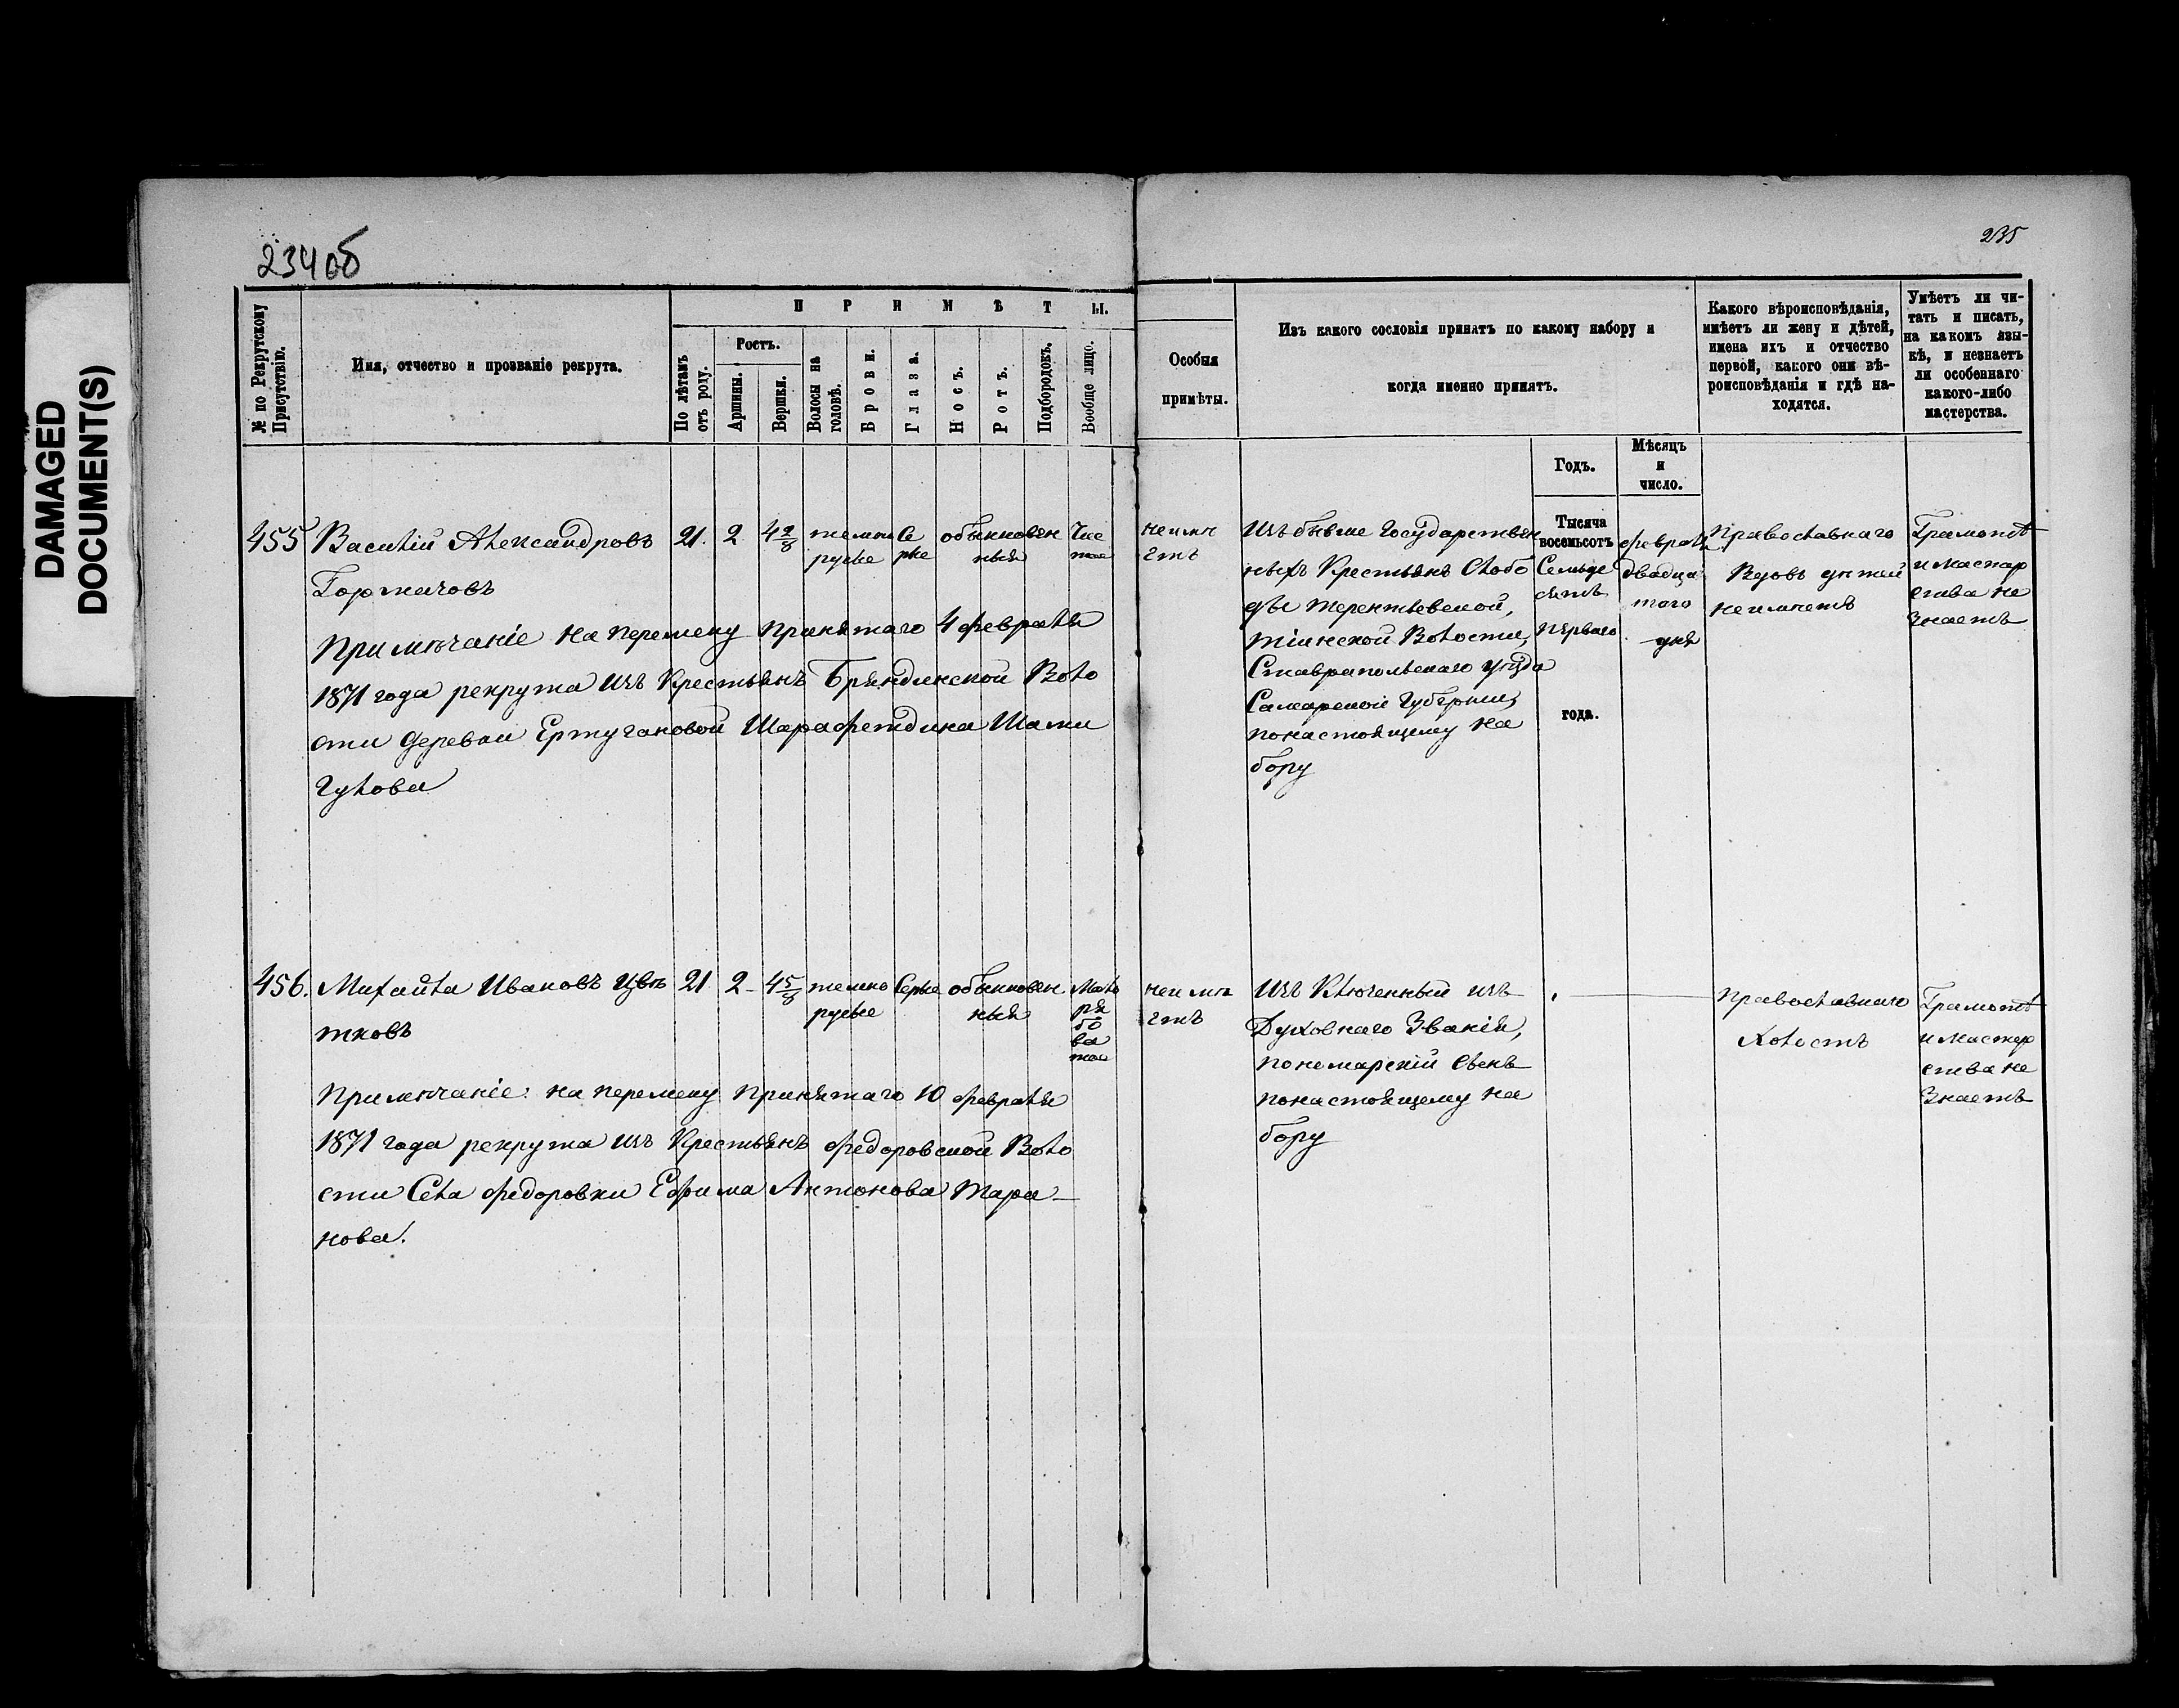 DAMAGED
DOCUMENT(S)
234 об
235
№ по Рекрутскому
Присутствію.
Имя, отчество и прозваніе рекрута.
П Р И М Ѣ Т Ы.
По лѣтамъ
отъ роду.
Ростъ.
Аршины.
Вершки.
Волосы на
головѣ.
Брови.
Глаза.
Носъ.
Ротъ.
Подбородокъ.
Вообще лицо.
Особыя
примѣты.
Изъ какого сословія принятъ по какому набору и
когда именно принятъ.
Годъ.
Мѣсяцъ
и
число.
Какого вѣроисповѣданія,
имѣетъ ли жену и дѣтей,
имена ихъ и отчество
первой, какого они вѣ-
роисповѣданія и гдѣ на-
ходятся.
Умѣетъ ли чи-
тать и писать,
на какомъ язы-
кѣ, и незнаетъ
ли особеннаго
какого-либо
мастерства.
455 Василій Александровъ
Горначовъ
21. 2. 4 2/8
темно
русые
Се
рые
обыкновен
ныя
Чис
тое
Примѣчаніе на перемену принятаго 4 февраля
1871 года рекрута изъ Крестьянъ Бряндинской Воло
сти деревни Ертугановой Шарафетдина Шами
гулова
неимѣ
етъ
Изъ бывше Государствен
ныхъ Крестьянъ Слобо
ды Терентьевской,
тіинской Волости,
Ставрапольскаго уѣзда
Самарской Губерніи,
понастоящему на
бору
Тысяча
восемьсотъ
Семьде
сятъ
Перваго
года.
февраля
двадца
таго
дня
Православнаго
Вдовъ дѣтей
неимѣетъ
Грамотѣ
и мастер
ства не
знаетъ
456. Михайла Ивановъ Цвѣ
тковъ
21 2 4 5/8
темно
русые
Серые
обыкновен
ныя
Мало
ря
бо
ва
тое
Примѣчаніе: на перемену принятаго 10 февраля
1871 года рекрута изъ Крестьянъ Федоровской Воло
сти Села Федоровки Ефима Антонова Тара-
нова.
неимѣ
етъ
Изъ Ключенный изъ
Духовнаго Званія,
пономарскій Сынъ
понастоящему на
бору
Православнаго
Холостъ
Грамотѣ
и мастер
ства не
Знаетъ